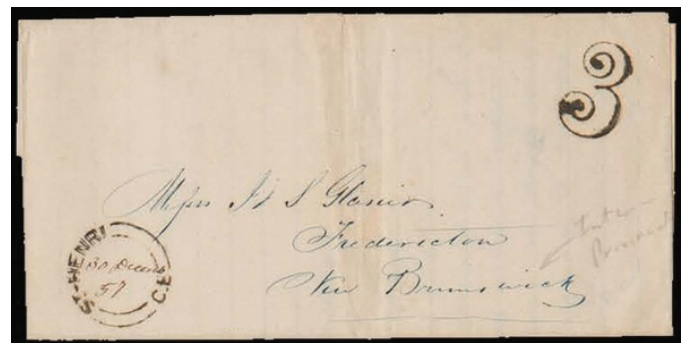 3
Messrs J & S Glasier
Fredericton
New Brunswick
Inter
Provincial
ST-HENRI C.E.
30 Decem
57